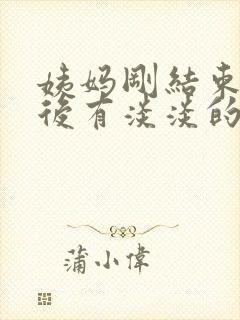 姨妈剛結束
後有淡淡的
蒲小偉